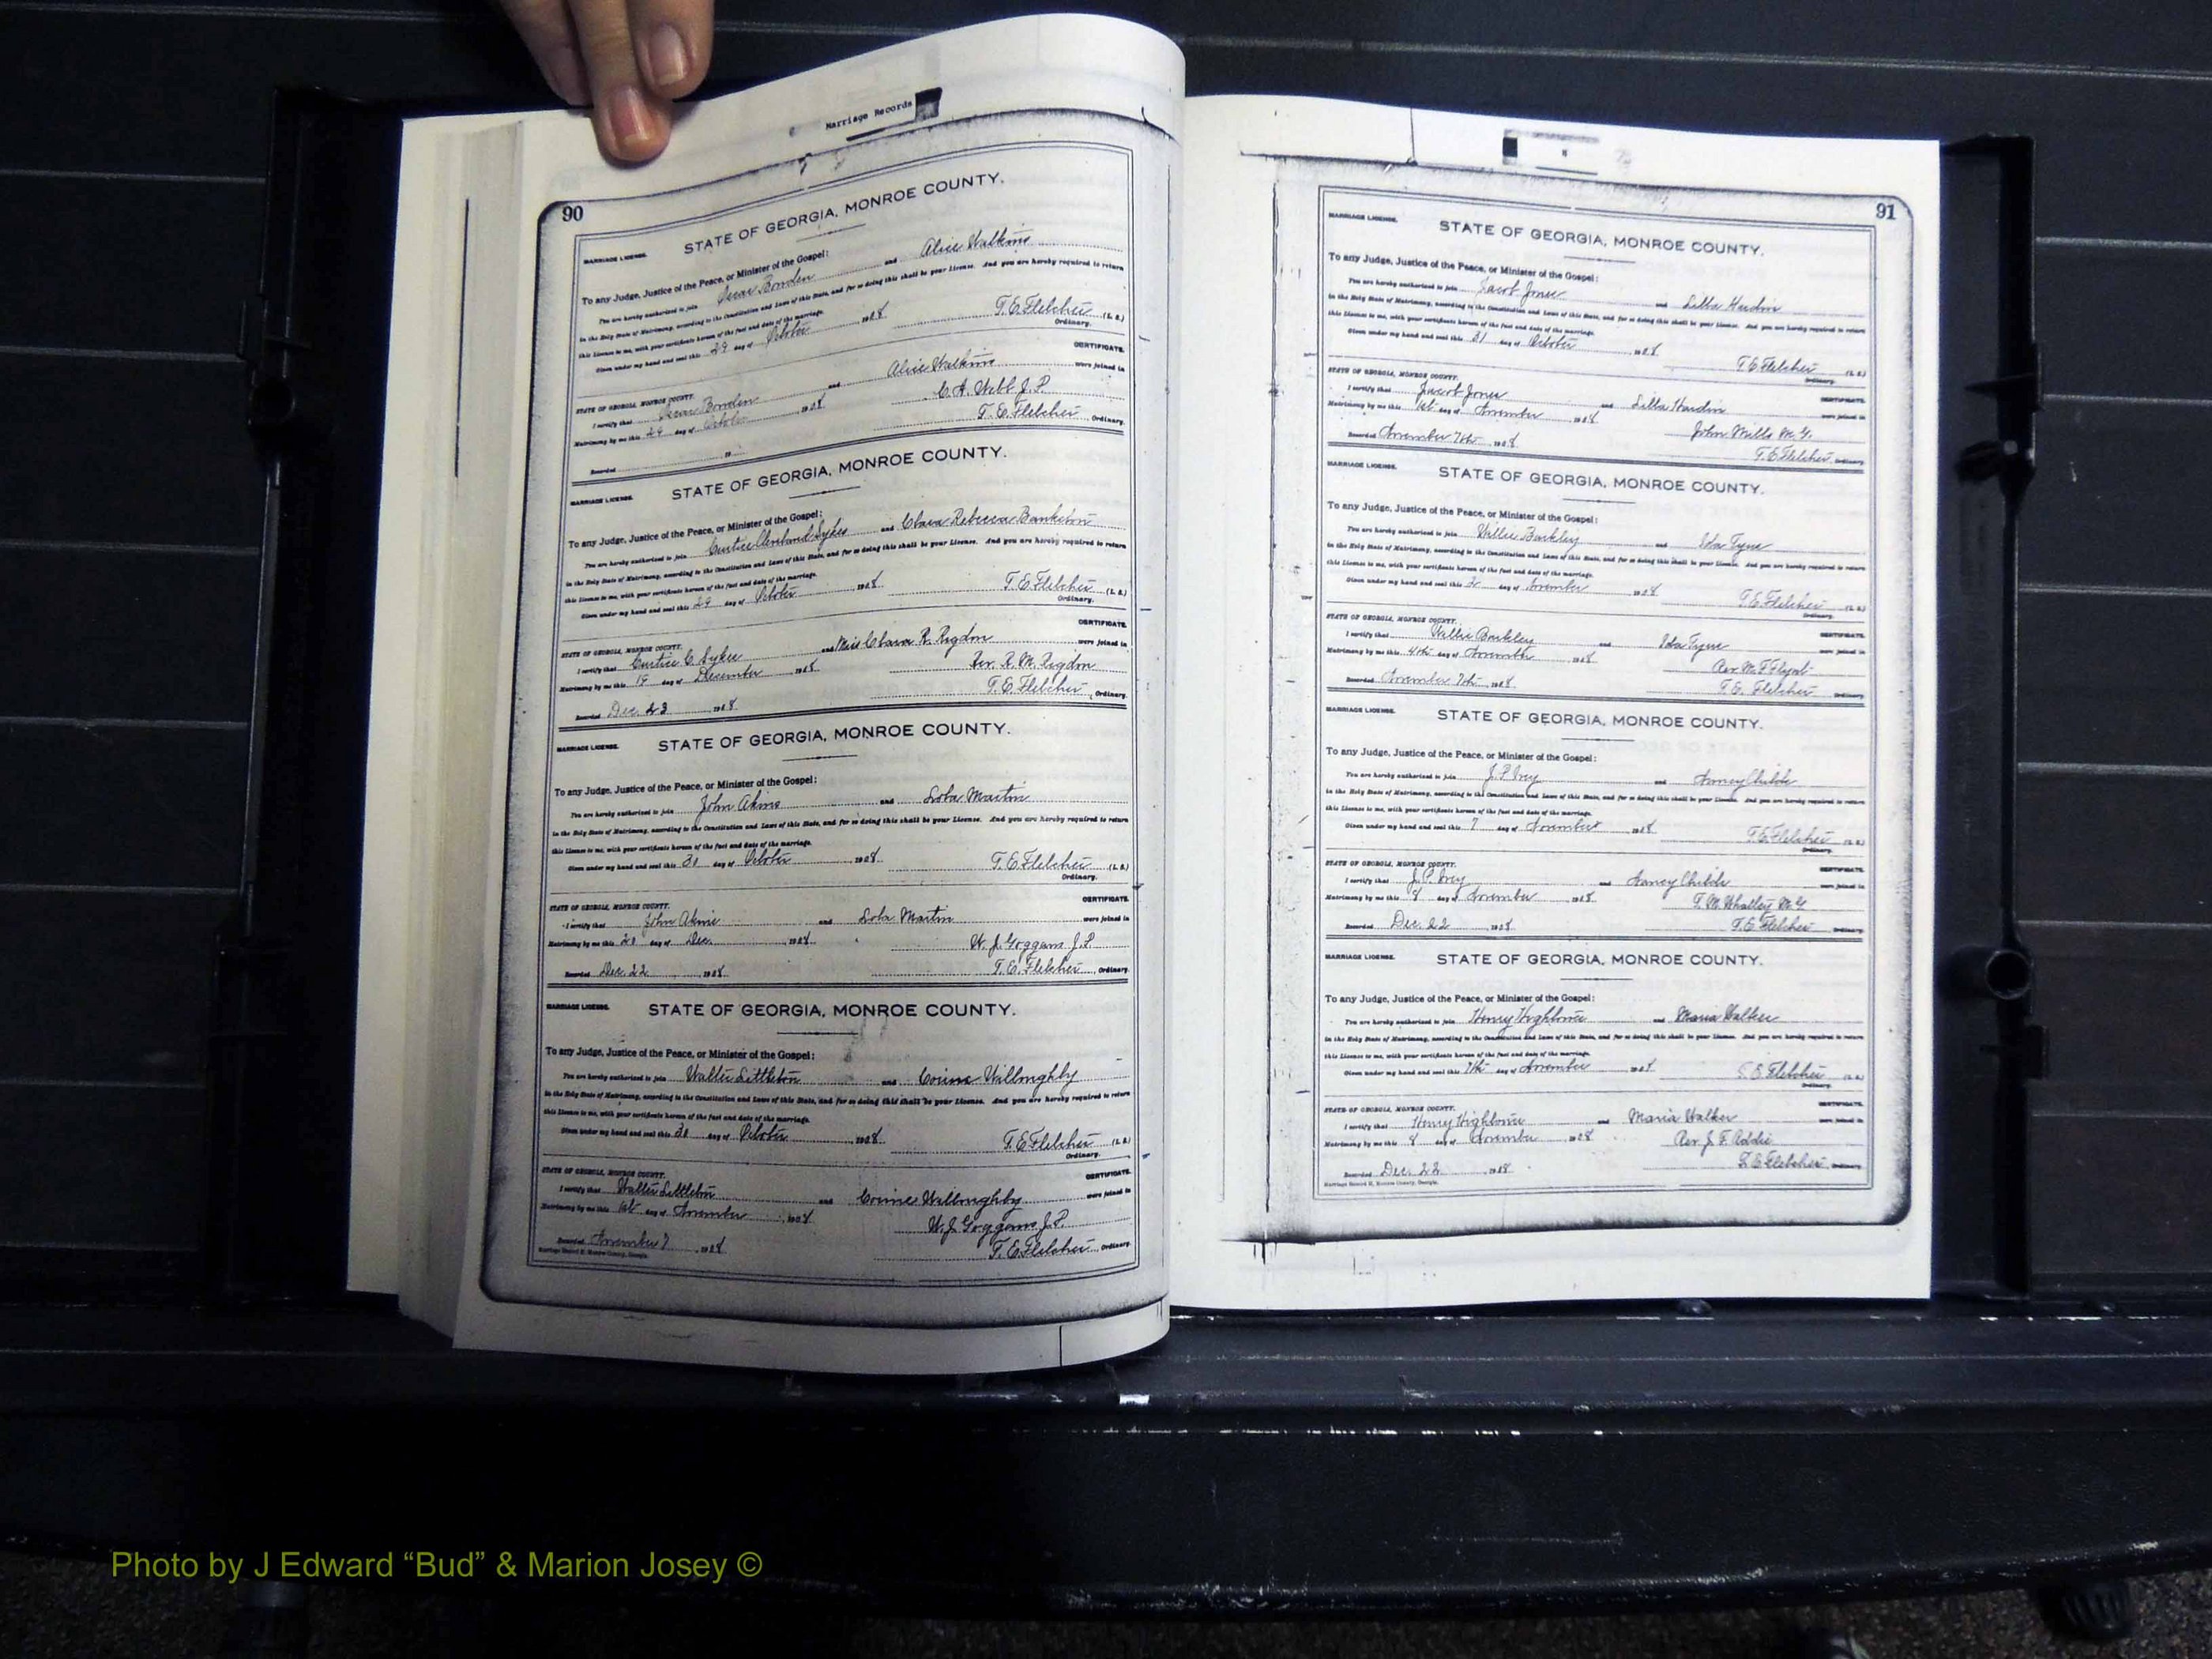 Marriage Records
90
MARRIAGE LICENSE. STATE OF GEORGIA, MONROE COUNTY.
To any Judge, Justice of the Peace, or Minister of the Gospel:
You are hereby authorized to join Oscar Bowden and Alice Walkins
in the Holy State of Matrimony, according to the Constitution and Laws of this State, and for so doing this shall be your License. And you are hereby required to return
this License to me, with your certificate hereon of the fact and date of the marriage.
Given under my hand and seal this 29 day of October 1908 T. E. Fletcher (L. S.)
Ordinary.
STATE OF GEORGIA, MONROE COUNTY. CERTIFICATE.
I certify that Oscar Bowden and Alice Walkins were joined in
Matrimony by me this 29 day of October 1908 C. A. Webb J. P.
Recorded 19 T. E. Fletcher, Ordinary.
MARRIAGE LICENSE. STATE OF GEORGIA, MONROE COUNTY.
To any Judge, Justice of the Peace, or Minister of the Gospel:
You are hereby authorized to join Curtice Cleveland Sykes and Clara Rebecca Bankston
in the Holy State of Matrimony, according to the Constitution and Laws of this State, and for so doing this shall be your License. And you are hereby required to return
this License to me, with your certificate hereon of the fact and date of the marriage.
Given under my hand and seal this 29 day of October 1908 T. E. Fletcher (L. S.)
Ordinary.
STATE OF GEORGIA, MONROE COUNTY. CERTIFICATE.
I certify that Curtice C Sykes and Miss Clara R. Rigdon were joined in
Matrimony by me this day of December 1908 Rev. R. M. Rigdon
Recorded Dec. 23 1908 T. E. Fletcher, Ordinary.
MARRIAGE LICENSE. STATE OF GEORGIA, MONROE COUNTY.
To any Judge, Justice of the Peace, or Minister of the Gospel:
You are hereby authorized to join John Akins and Martin
in the Holy State of Matrimony, according to the Constitution and Laws of this State, and for so doing this shall be your License. And you are hereby required to return
this License to me, with your certificate hereon of the fact and date of the marriage.
Given under my hand and seal this day of October 1908 T. E. Fletcher (L. S.)
Ordinary.
STATE OF GEORGIA, MONROE COUNTY. CERTIFICATE.
I certify that John Akins and Martin were joined in
Matrimony by me this day of Dec. 1908 W. J. Goggans J. P.
Recorded Dec. 22 1908 T. E. Fletcher, Ordinary.
MARRIAGE LICENSE. STATE OF GEORGIA, MONROE COUNTY.
To any Judge, Justice of the Peace, or Minister of the Gospel:
You are hereby authorized to join Walter Littleton and Corine Willoughby
in the Holy State of Matrimony, according to the Constitution and Laws of this State, and for so doing this shall be your License. And you are hereby required to return
this License to me, with your certificate hereon of the fact and date of the marriage.
Given under my hand and seal this day of October 1908 T. E. Fletcher (L. S.)
Ordinary.
STATE OF GEORGIA, MONROE COUNTY. CERTIFICATE.
I certify that Walter Littleton and Corine Willoughby were joined in
Matrimony by me this 1st day of November 1908 W. J. Goggans J. P.
Recorded November 7 1908 T. E. Fletcher, Ordinary.
Marriage Record H, Monroe County, Georgia.
91
MARRIAGE LICENSE. STATE OF GEORGIA, MONROE COUNTY.
To any Judge, Justice of the Peace, or Minister of the Gospel:
You are hereby authorized to join Jacob Jones and Lilla Hardin
in the Holy State of Matrimony, according to the Constitution and Laws of this State, and for so doing this shall be your License. And you are hereby required to return
this License to me, with your certificate hereon of the fact and date of the marriage.
Given under my hand and seal this 31 day of October 1908 T. E. Fletcher (L. S.)
Ordinary.
STATE OF GEORGIA, MONROE COUNTY. CERTIFICATE.
I certify that Jacob Jones and Lilla Hardin were joined in
Matrimony by me this 1st day of November 1908 John Mills M. G.
Recorded November 7th 1908 T. E. Fletcher, Ordinary.
MARRIAGE LICENSE. STATE OF GEORGIA, MONROE COUNTY.
To any Judge, Justice of the Peace, or Minister of the Gospel:
You are hereby authorized to join Willie Barkley and Ida Tyne
in the Holy State of Matrimony, according to the Constitution and Laws of this State, and for so doing this shall be your License. And you are hereby required to return
this License to me, with your certificate hereon of the fact and date of the marriage.
Given under my hand and seal this day of November 1908 T. E. Fletcher (L. S.)
Ordinary.
STATE OF GEORGIA, MONROE COUNTY. CERTIFICATE.
I certify that Willie Barkley and Ida Tyne were joined in
Matrimony by me this 4th day of November 1908 Rev. M. F. Flynt
Recorded November 7th 1908 T. E. Fletcher, Ordinary.
MARRIAGE LICENSE. STATE OF GEORGIA, MONROE COUNTY.
To any Judge, Justice of the Peace, or Minister of the Gospel:
You are hereby authorized to join J. P. Ivey and Nancy Childs
in the Holy State of Matrimony, according to the Constitution and Laws of this State, and for so doing this shall be your License. And you are hereby required to return
this License to me, with your certificate hereon of the fact and date of the marriage.
Given under my hand and seal this 7 day of November 1908 T. E. Fletcher (L. S.)
Ordinary.
STATE OF GEORGIA, MONROE COUNTY. CERTIFICATE.
I certify that J. P. Ivey and Nancy Childs were joined in
Matrimony by me this 8 day of November 1908 T. M. Whatley M. G
Recorded Dec. 22 1908 T. E. Fletcher, Ordinary.
MARRIAGE LICENSE. STATE OF GEORGIA, MONROE COUNTY.
To any Judge, Justice of the Peace, or Minister of the Gospel:
You are hereby authorized to join Henry Hightower and Maria Walker
in the Holy State of Matrimony, according to the Constitution and Laws of this State, and for so doing this shall be your License. And you are hereby required to return
this License to me, with your certificate hereon of the fact and date of the marriage.
Given under my hand and seal this 7th day of November 1908 T. E. Fletcher (L. S.)
Ordinary.
STATE OF GEORGIA, MONROE COUNTY. CERTIFICATE.
I certify that Henry Hightower and Maria Walker were joined in
Matrimony by me this 8 day of November 1908 Rev. J. F. Addie
Recorded Dec. 22 1908 T. E. Fletcher, Ordinary.
Marriage Record H, Monroe County, Georgia.
Photo by J Edward “Bud” & Marion Josey ©